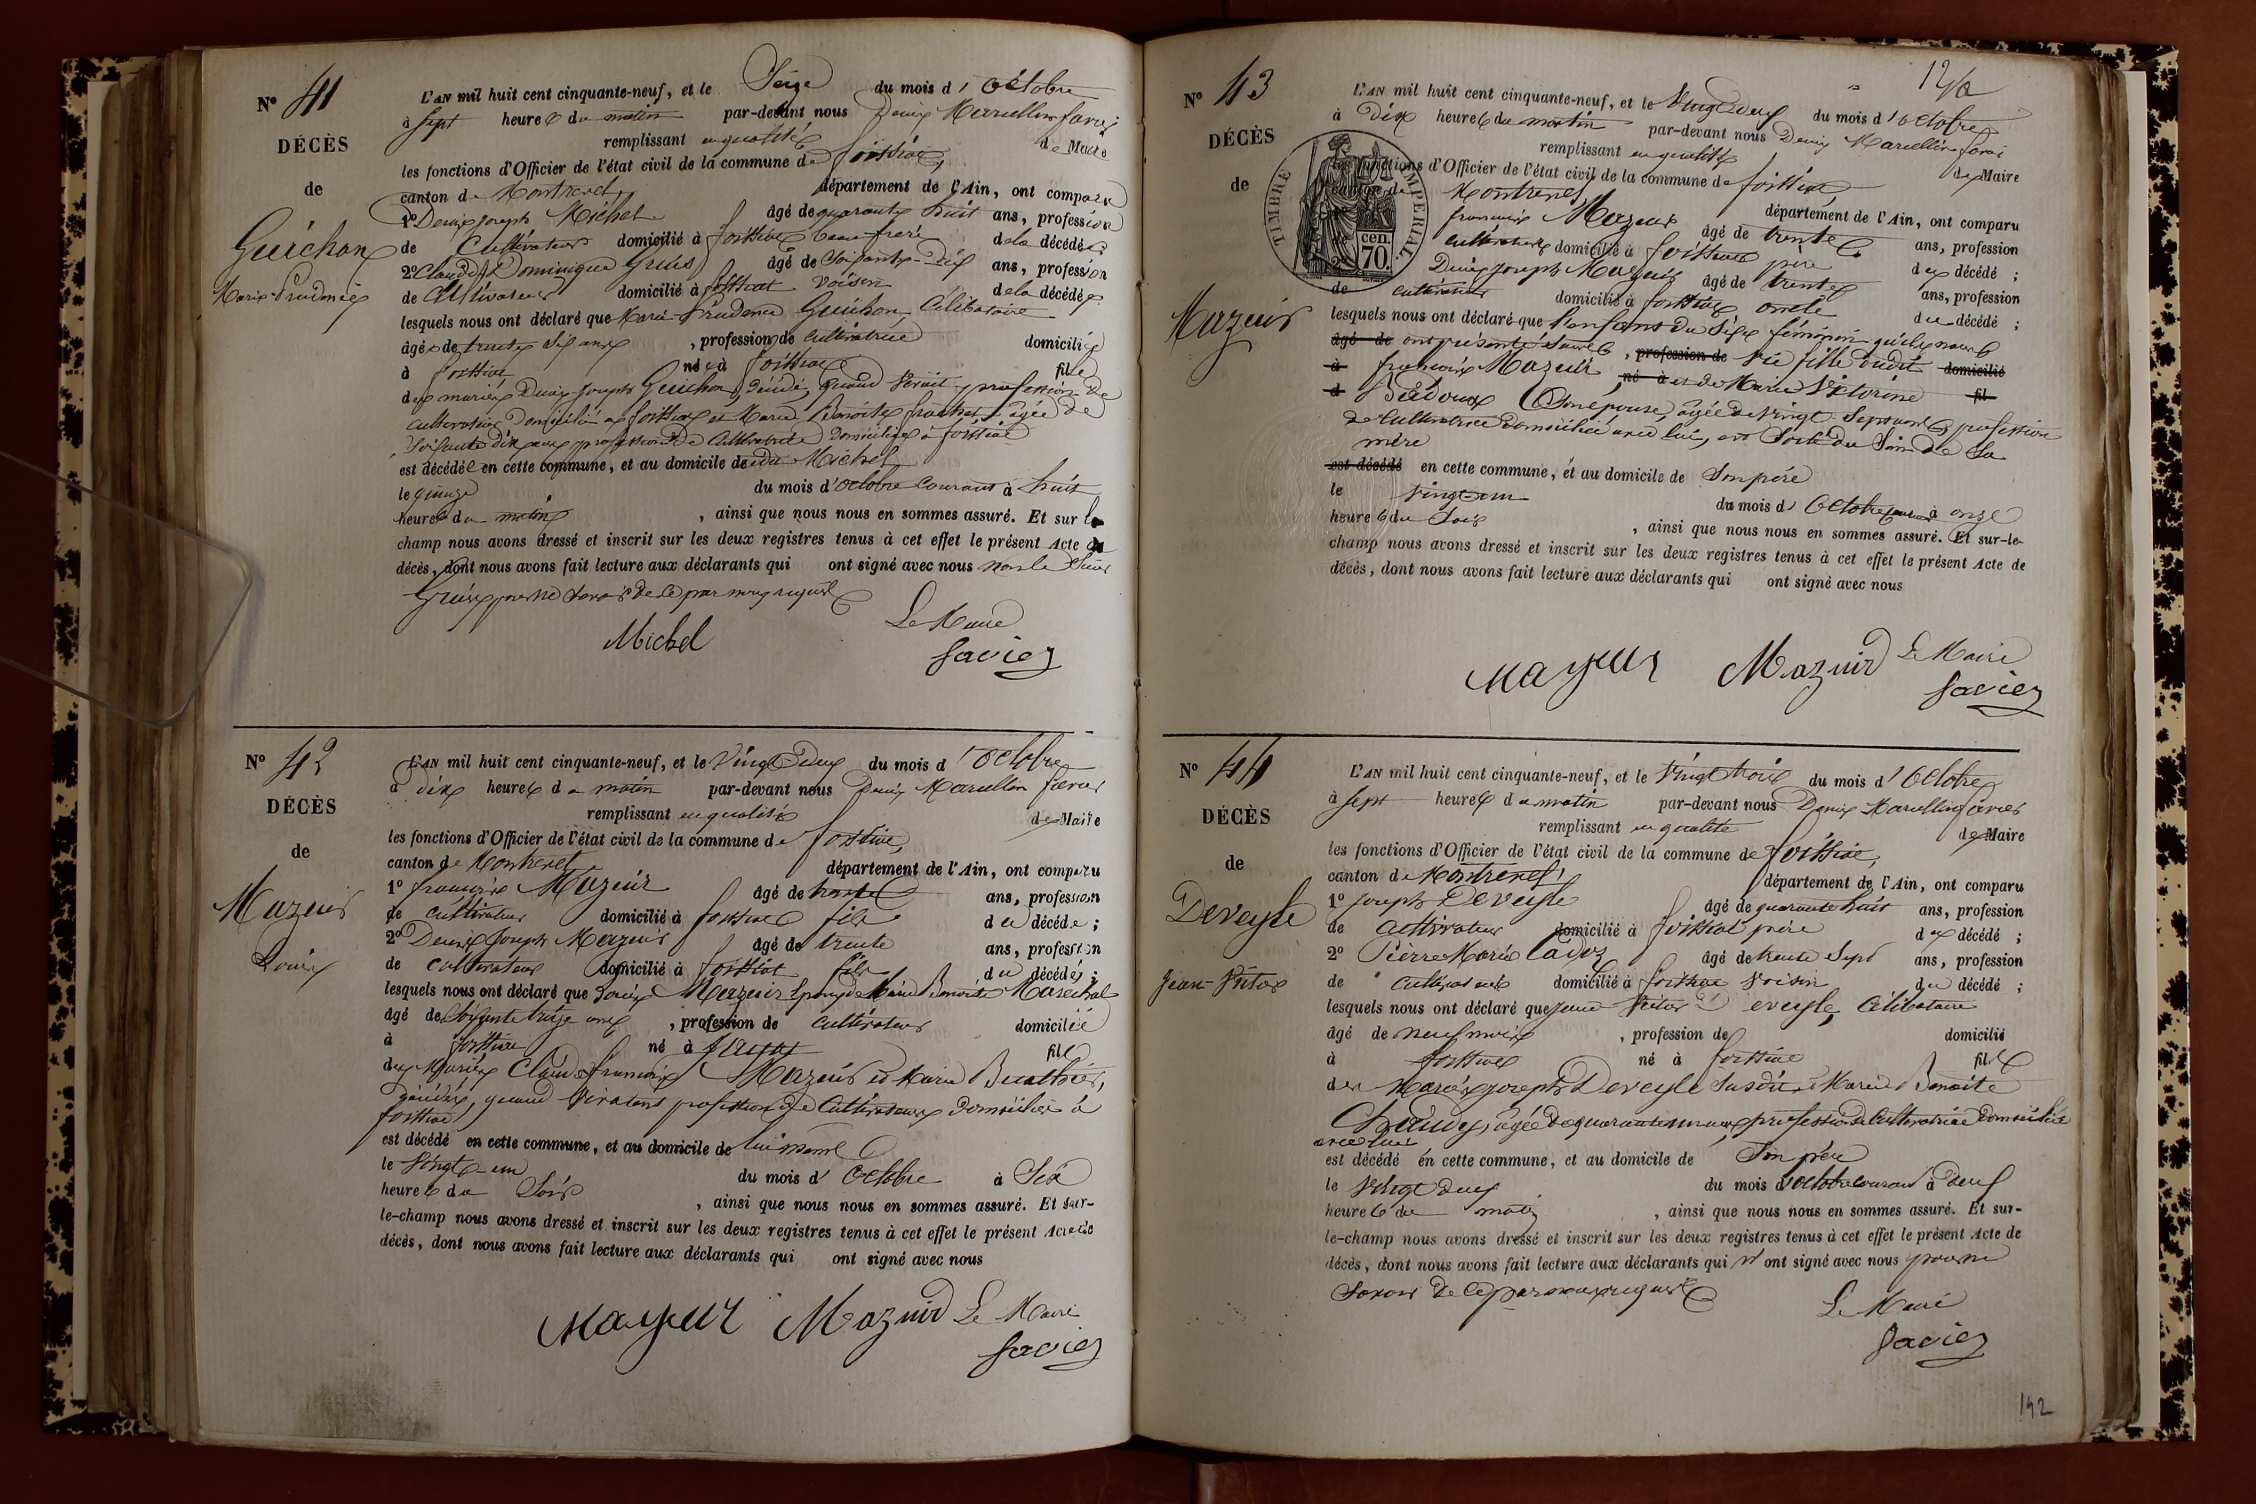 N° 41
DÉCÈS
de
Guichon
Marie Prudence
L'AN mil huit cent cinquante-neuf, et le Seize du mois d'Octobre
à Sept heures du matin par-devant nous Denis Marcellin favier
remplissant en qualité de Maire
les fonctions d'Officier de l'état civil de la commune de foissiat,
canton de Montrevel, département de l'Ain, ont comparu
1° Denis Joseph Michel âgé de quarante huit ans, profession
de Cultivateur domicilié à foissiat beau-frère de la décédée
2° Claude Dominique âgé de Soixante-Dix ans, profession
de Cultivateur domicilié à foissiat voisin de la décédée
lesquels nous ont déclaré que Marie-Prudence Guichon, Célibataire
âgée de trente Six ans, profession de cultivatrice domiciliée
à foissiat née à foissiat fille
des mariés Denis Joseph Guichon, décédé, quand vivait profession de
cultivateur domicilié à foissiat et Marie Benoite âgée de
Soixante dix ans profession de Cultivatrice domiciliée à foissiat
est décédée en cette commune, et au domicile de dit Michel
le quinze du mois d'Octobre courant à huit
heures du matin, ainsi que nous nous en sommes assuré. Et sur le
champ nous avons dressé et inscrit sur les deux registres tenus à cet effet le présent Acte de
décès, dont nous avons fait lecture aux déclarants qui ont signé avec nous non le Sieur
pour ne Savoir de ce par nous requis
Michel Le Maire
favier
N° 42
DÉCÈS
de
Mazuir
Louis
L'AN mil huit cent cinquante-neuf, et le Vingt Deux du mois d'Octobre
à dix heures du matin par-devant nous Denis Marcellin favier
remplissant en qualité de Maire
les fonctions d'Officier de l'état civil de la commune de foissiat,
canton de Montrevel département de l'Ain, ont comparu
1° françois Mazuir âgé de trente ans, profession
de cultivateur domicilié à foissiat fils du décédé ;
2° Denis Joseph Mazuir âgé de trente ans, profession
de cultivateur domicilié à foissiat fils du décédé ;
lesquels nous ont déclaré que Louis Mazuir Epoux de Marie Benoite Maréchal
âgé de Soixante treize ans, profession de cultivateur domicilié
à foissiat né à fils
des Mariés Claude françois Mazuir et Marie Buathier,
décédés, quand vivaient profession de Cultivateurs domiciliés à
foissiat
est décédé en cette commune, et au domicile de lui même
le Vingt-un du mois d'Octobre à Six
heures du Soir, ainsi que nous nous en sommes assuré. Et sur-
le-champ nous avons dressé et inscrit sur les deux registres tenus à cet effet le présent Acte de
décès, dont nous avons fait lecture aux déclarants qui ont signé avec nous
Mazuir Mazuir Le Maire
favier
N° 43
DÉCÈS
de
Mazuir
TIMBRE IMPERIAL
70 cen.
L'AN mil huit cent cinquante-neuf, et le Vingt Deux du mois d'Octobre
à Dix heures du matin par-devant nous Denis Marcellin favier
remplissant en qualité de Maire
les fonctions d'Officier de l'état civil de la commune de foissiat
canton de Montrevel département de l'Ain, ont comparu
françois Mazuir âgé de trente ans, profession
cultivateur domicilié à foissiat père du décédé ;
Denis Joseph Mazuir âgé de trente ans, profession
de cultivateur domicilié à foissiat oncle du décédé ;
lesquels nous ont déclaré que l'enfant du Sexe féminin qu'ils nous
âgé de ont présenté Sans vie, profession de née fille dudit domicilié
à françois Mazuir né à et de Marie Victorine fil
d Son épouse, âgée de vingt Sept ans profession
de Cultivatrice domiciliée avec lui, est Sorti du Sein de Sa
mère
est décédé en cette commune, et au domicile de Son père
le Vingt-un du mois d'Octobre courant à onze
heures du Soir, ainsi que nous nous en sommes assuré. Et sur-le-
champ nous avons dressé et inscrit sur les deux registres tenus à cet effet le présent Acte de
décès, dont nous avons fait lecture aux déclarants qui ont signé avec nous
Mazuir Mazuir Le Maire
favier
N° 44
DÉCÈS
de
Deveyle
Jean-Victor
L'AN mil huit cent cinquante-neuf, et le Vingt trois du mois d'Octobre
à Sept heures du matin par-devant nous Denis Marcellin favier
remplissant en qualité de Maire
les fonctions d'Officier de l'état civil de la commune de foissiat,
canton de Montrevel, département de l'Ain, ont comparu
1° Joseph Deveyle âgé de quarante huit ans, profession
de cultivateur domicilié à foissiat père du décédé ;
2° Pierre Marie Cadoz âgé de trente Sept ans, profession
de cultivateur domicilié à foissiat voisin du décédé ;
lesquels nous ont déclaré que Jean Victor Deveyle, Célibataire
âgé de neuf mois, profession de domicilié
à foissiat né à foissiat fils
des Mariés Joseph Deveyle Susdit et Marie Benoite
âgée de quarante un ans profession de Cultivatrice domiciliée
avec lui
est décédé en cette commune, et au domicile de Son père
le Vingt deux du mois d'Octobre courant à deux
heures du matin, ainsi que nous nous en sommes assuré. Et sur-
le-champ nous avons dressé et inscrit sur les deux registres tenus à cet effet le présent Acte de
décès, dont nous avons fait lecture aux déclarants qui n'ont signé avec nous pour ne
Savoir de ce par nous requis
Le Maire
favier
142